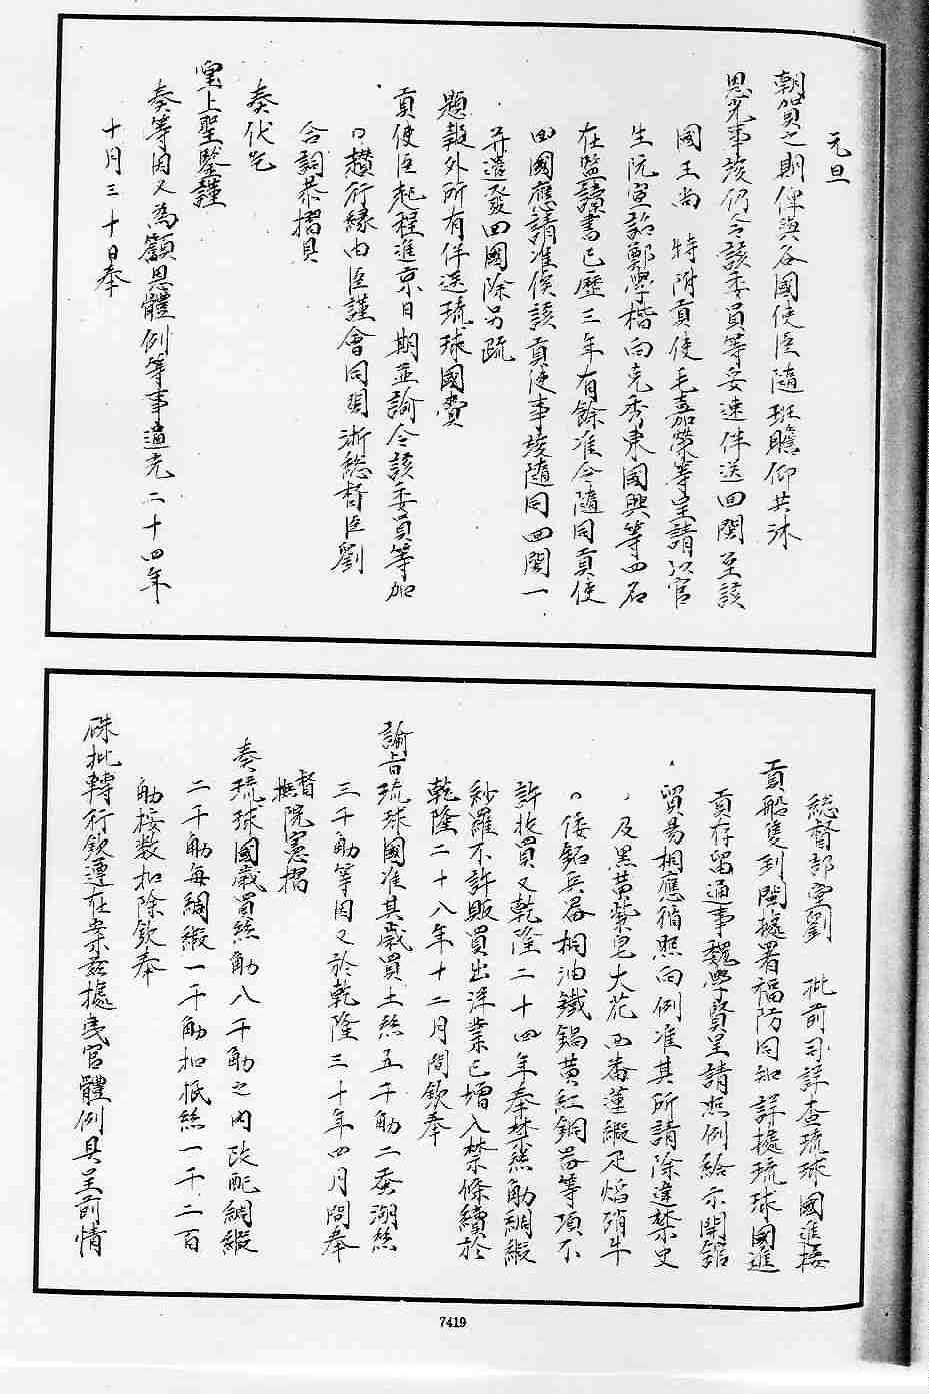 元旦
朝賀之期俾與各國使臣隨班瞻仰共沐
恩光事竣仍令該委員等妥速伴送回閩至該
國王尚 特附貢使毛嘉榮等呈請以官
生阮宣詔鄭學楷向克秀東國興等四名
在監讀書已歷三年有餘准令隨同貢使
回國應請准俟該貢使事竣隨同回閩一
并遣發回國除另疏
題報外所有伴送琉球國貢
貢使臣起程進京日期並諭令該委員等加
口趲行緣由臣謹會同閩浙總督臣劉
合詞恭摺具
奏伏乞
皇上聖鑒謹
奏等因又為籲恩體例等事道光二十四年
十月三十日奉
總督部堂劉 批前司詳查琉球國進接
貢船隻到閩據署福防同知詳據琉球國進
貢存留通事魏學賢呈請照例給示開館
貿易相應循照向例准其所請除違禁史
及黑黃紫皂大花西番蓮緞疋焰硝牛
口倭鉛兵器桐油鐵鍋黃紅銅器等項不
許收買又乾隆二十四年奉禁絲觔綢緞
紗羅不許販買出洋業已增入禁條續於
乾隆二十八年十二月間欽奉
諭旨琉球國准其歲買土絲五千觔二蚕湖絲
三千觔等因又於乾隆三十年四月間奉
督撫院憲摺
奏琉球國歲買絲觔八千觔之內改配綢緞
二千觔每綢緞一千觔扣抵絲一千二百
觔按數扣除欽奉
硃批轉行欽遵在案茲據夷官體例具呈前情
7419